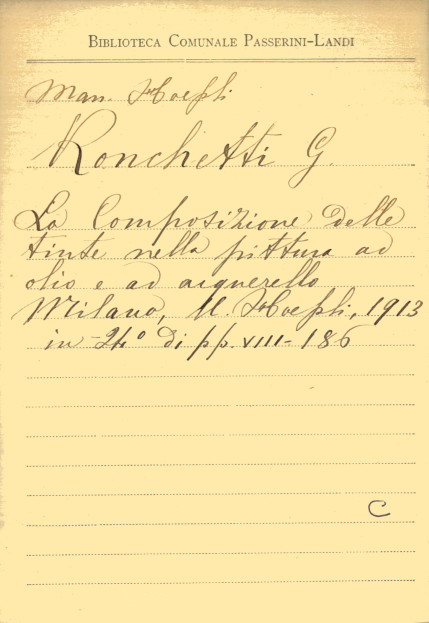 BIBLIOTECA COMUNALE PASSERINI-LANDI
Man. Hoepli
Ronchetti G.
La Composizione delle
tinte nella pittura ad
olio e ad acquerello
Milano, U. Hoepli, 1913
in -24° di pp. VIII-186
C